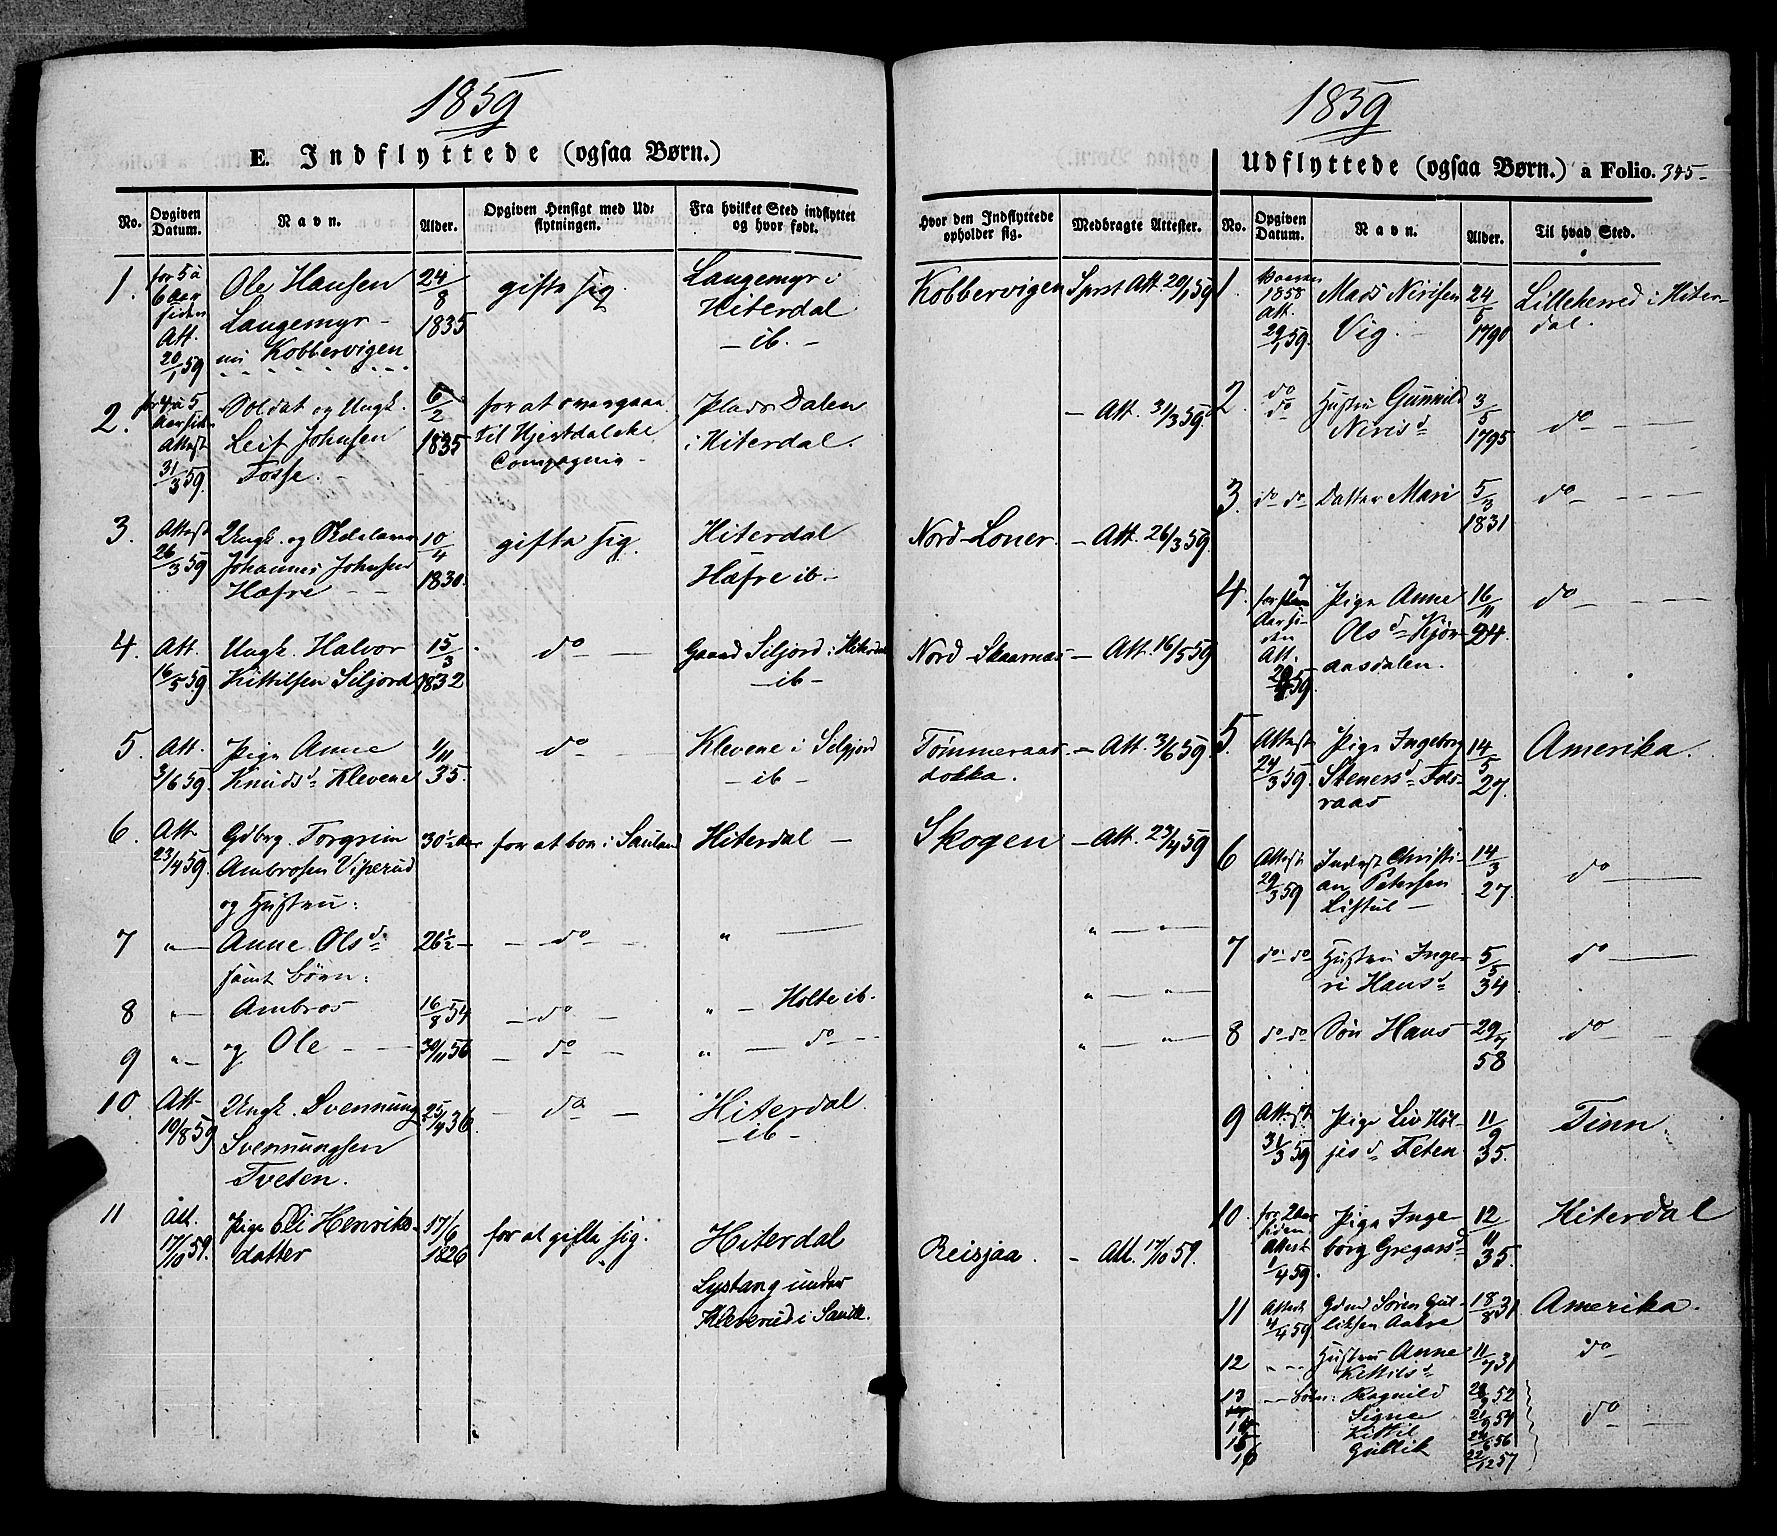 1859
E. Indflyttede (ogsaa Børn.)
No.
Opgiven Datum.
Navn.
Alder.
Opgiven Hensigt med Ud=
flytningen.
Fra hvilket Sted indflyttet
og hvor født.
Hvor den Indflyttede
opholder sig.
Medbragte Attester.
1. for 5 à 6 Aar siden Att. 20/1 59
Ole Hansen
Langemyr -
nu Kobbervigen
24/8 1835
gifte sig.
Langemyr i
Hiterdal
- ib. -
Kobbervigen
Sprst Att 20/1 59
2. for 4 à 5 Aar siden Attest 31/3 59
Soldat og Ungk.
Leif Johnsen
Fosse.
6/2 1835
for at overgaae
til Hjertdalske
Compagnie -
Plads Dalen
i Hiterdal.
- Att. 31/3 59.
3. Attest 26/3 59
Ungk. og
Johannes Johnsen
Hafre - -
10/4 1830.
gifte sig.
Hiterdal
Hafre ib. -
Nord-Loner.
- Att. 26/3 59.
4. Att. 16/5 59
Ungk. Halvor
Kittilsen Siljord
15/3 1832
do -
Gaard Siljord i Hiterdal
- ib -
Nord-Skaarnas
- Att. 16/5 59
5. Att. 3/6 59
Pige Anne
Knudsd. Klevene
1/11 35.
do
Klevene i Siljord
- ib -
Tommeraas-
dokka.
- Att. 3/6 59
6. Att. 23/4 59
Gdbrg. Torgrim
Ambrosen Viperud
og Hustru:
30 1/2 Aar
for at boe i Sauland
Hiterdal -
Skogen
- Att. 23/4 59
7 " -
Anne Olsd.
samt børn:
26 1/2 -
- do -
" -
" - " -
8 " -
Ambros
16/8 54
- do -
" - Holte ib.
" - " -
9 " -
og Ole - -
30/11 56
- do -
" - do - -
" - " -
10 Att. 19/8 59
Ungk. Svennung
Svennungsen
Tveten.
25/4 36
- do -
Hiterdal.
- ib -
11 Att. 17/10 59.
Pige Eli Henriks-
datter
17/6 1826
for at gifte sig.
Hiterdal
Lystang under
Kleverud i Sauld.
Reisjaa.
- Att. 17/10 59.
1859
Udflyttede (ogsaa Børn.) a Folio. 345-
No.
Opgiven Datum.
Navn.
Alder.
Til hvad Sted.
1. Vaaren 1858 Att. 29/1 59.
Mads Nirisen
Vig. -
24/5 1790
Lilleherred i Hiter-
dal.
2. do do
Hustru Gunnild
Nirisd.
3/5 1795
do - -
3. do do
Datter Mari
5/3 1831
do - - -
4. for 7 Aar si-
den Att. 59.
Pige Anne
Olsd. Kjør-
aasdalen.
16/11 24.
do - - -
5. Attest 24/3 59.
Pige Ingeborg
Stenersd.
raas
14/5 27.
Amerika.
6 Attest 29/3 59
Inderst Christi-
an Petersen
Listul -
14/3 27.
do -
7 do do
Hustru Inge-
ri Hansd.
5/5 34
do -
8 do do
Søn Hans
29/7 58
do -
9 Attest 31/3 59
Pige Liv Høl-
jesd. Teten
11/9 35.
Tinn
10. for 2 Aar siden Attest 1/4 59.
Pige Inge-
borg Gregarsd.
12/11 35.
Hiterdal
11 Attest 4/4 59
Gdmd Søren Gul-
liksen Aasre
18/8 31
Amerika.
12 - -
Hustru Anne
Kittilsd.
11/7 31
do
13 - Børn: Ragnild
52
Signe
21/9 54
do -
15 Kittil
56
16 Gullik
22/12 57